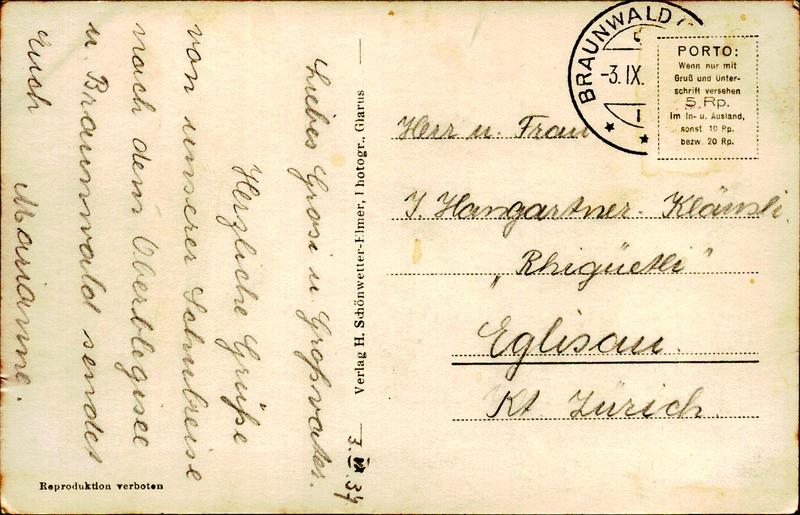 Liebes Grosi u Großvater.
Herzliche Grüße
von unserer Schulreise
nach dem Oberblegisee
u. Braunwald sendet
Euch
Marianne.
3. IX. 34
Verlag H. Schönwetter-Elmer, Photogr., Glarus
Reproduktion verboten
BRAUNWALD
-3. IX.
PORTO:
Wenn nur mit
Gruß und Unter-
schrift versehen
5 Rp.
Im In- u. Ausland,
sonst 10 Rp.
bezw. 20 Rp.
Herr u. Frau
J. Hangartner-
„Rhigüetli"
Eglisau.
Kt Zürich.